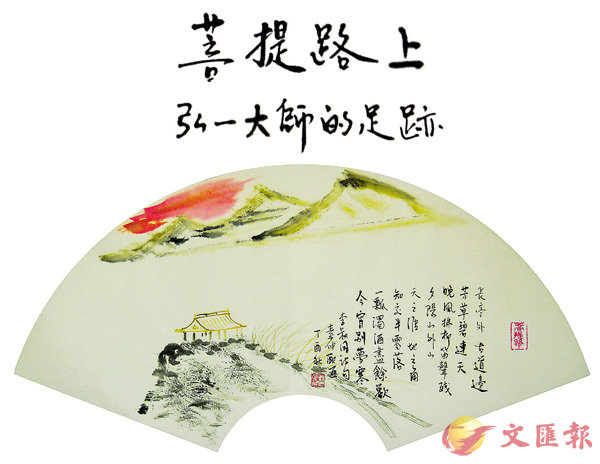 菩提路上
弘一大師的足跡
長亭外 古道邊
芳草碧連天
晚風拂柳笛聲殘
夕陽山外山
天之涯 地之角
知交半零落
一瓢濁酒盡餘歡
今宵別夢寒
李叔同詩句
素仲配画
丁酉秋
文匯報